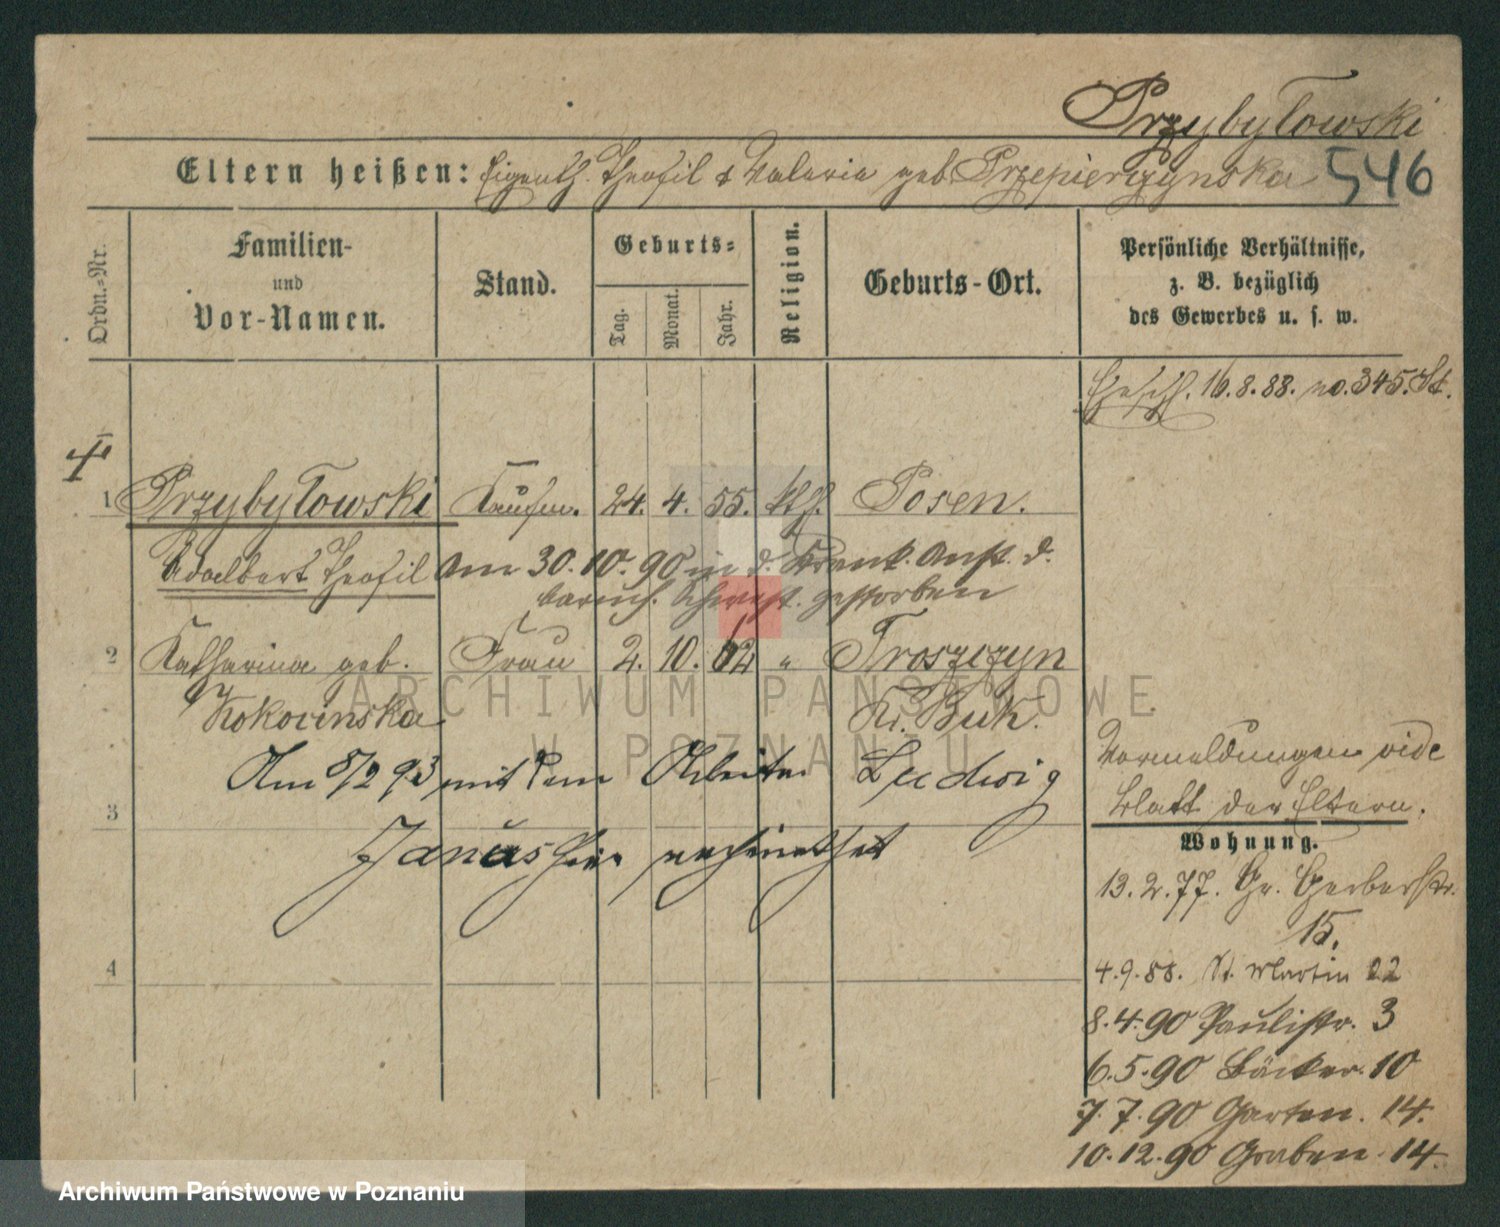 Przybyłowski
Eltern heißen: Eigenth. Theofil & Valeria geb. Przepierzynska 546
Ordn.-Nr.
Familien-
und
Vor-Namen.
Stand.
Geburts=
Tag.
Monat.
Jahr.
Religion.
Geburts-Ort.
Persönliche Verhältnisse,
z. B. bezüglich
des Gewerbes u. s. w.
16.8.88. no. 345. St.
1 Przybyłowski Kaufm. 24. 4. 55. kth. Posen.
Adalbert Theofil am 30.10.90 in d. Krank. Anst. d.
barmh. Schwest. gestorben
2 Katharina geb. Frau 2. 10. 62 " Troszczyn
Kokocinska Kr. Buk.
Am 8/2 93 mit dem Arbeiter Ludwig
3
Janus hier verheirathet
4
Vormeldungen vide
Blatt der Eltern.
Wohnung.
13.2.77. Gr. Gerberstr.
15.
4.9.88. St. Martin 22
8.4.90 Paulistr. 3
6.5.90 Bäcker. 10
7.7.90 Garten. 14.
10.12.90 Graben. 14.
ARCHIWUM PAŃSTWOWE
W POZNANIU
Archiwum Państwowe w Poznaniu